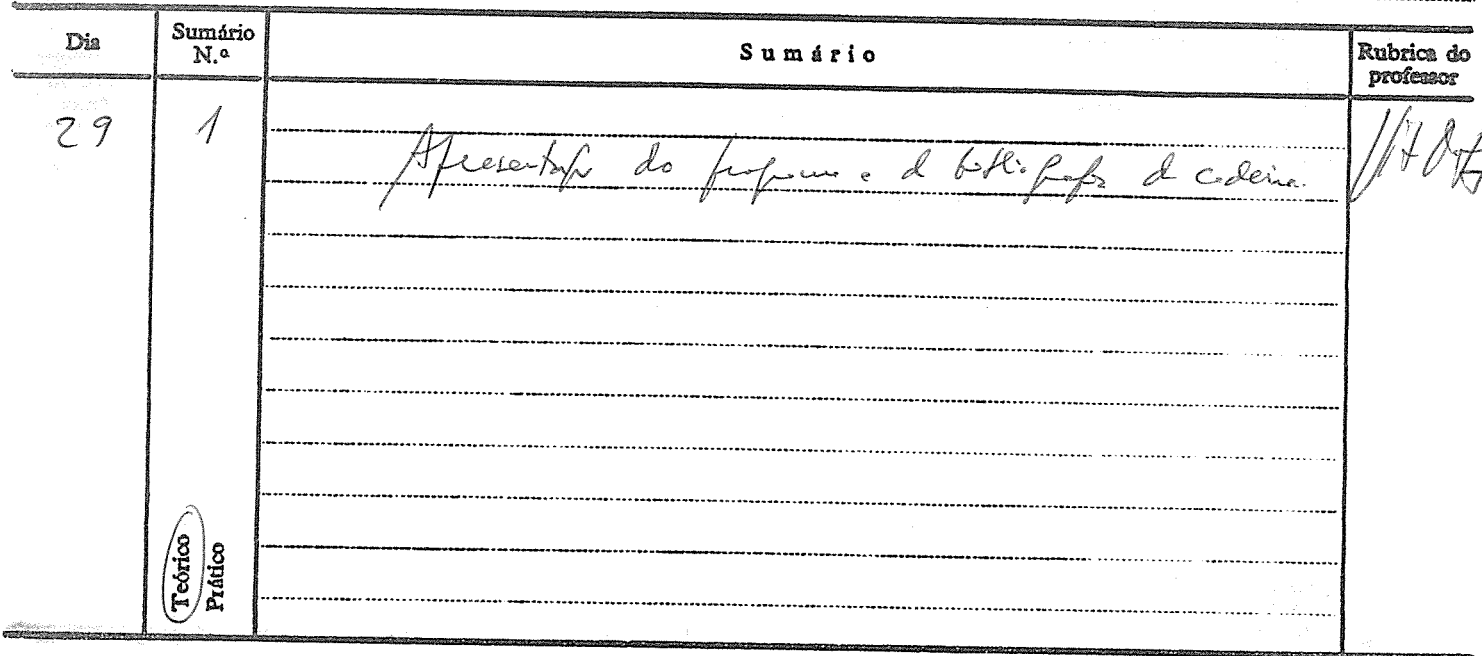 Dia
Sumário N.º
Sumário
Rubrica do professor
29
1
Apresentação do programa e da bibliografia da cadeira.
Teórico
Prático